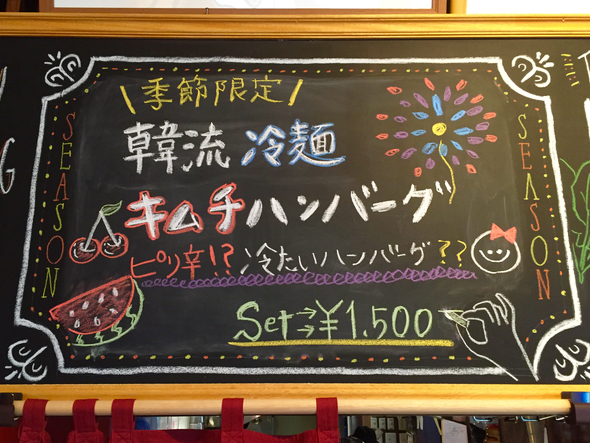 \季節限定/
韓流 冷麺
キムチハンバーグ
ピリ辛!? 冷たいハンバーグ??
Set→→¥1.500
SEASON
SEASON
G